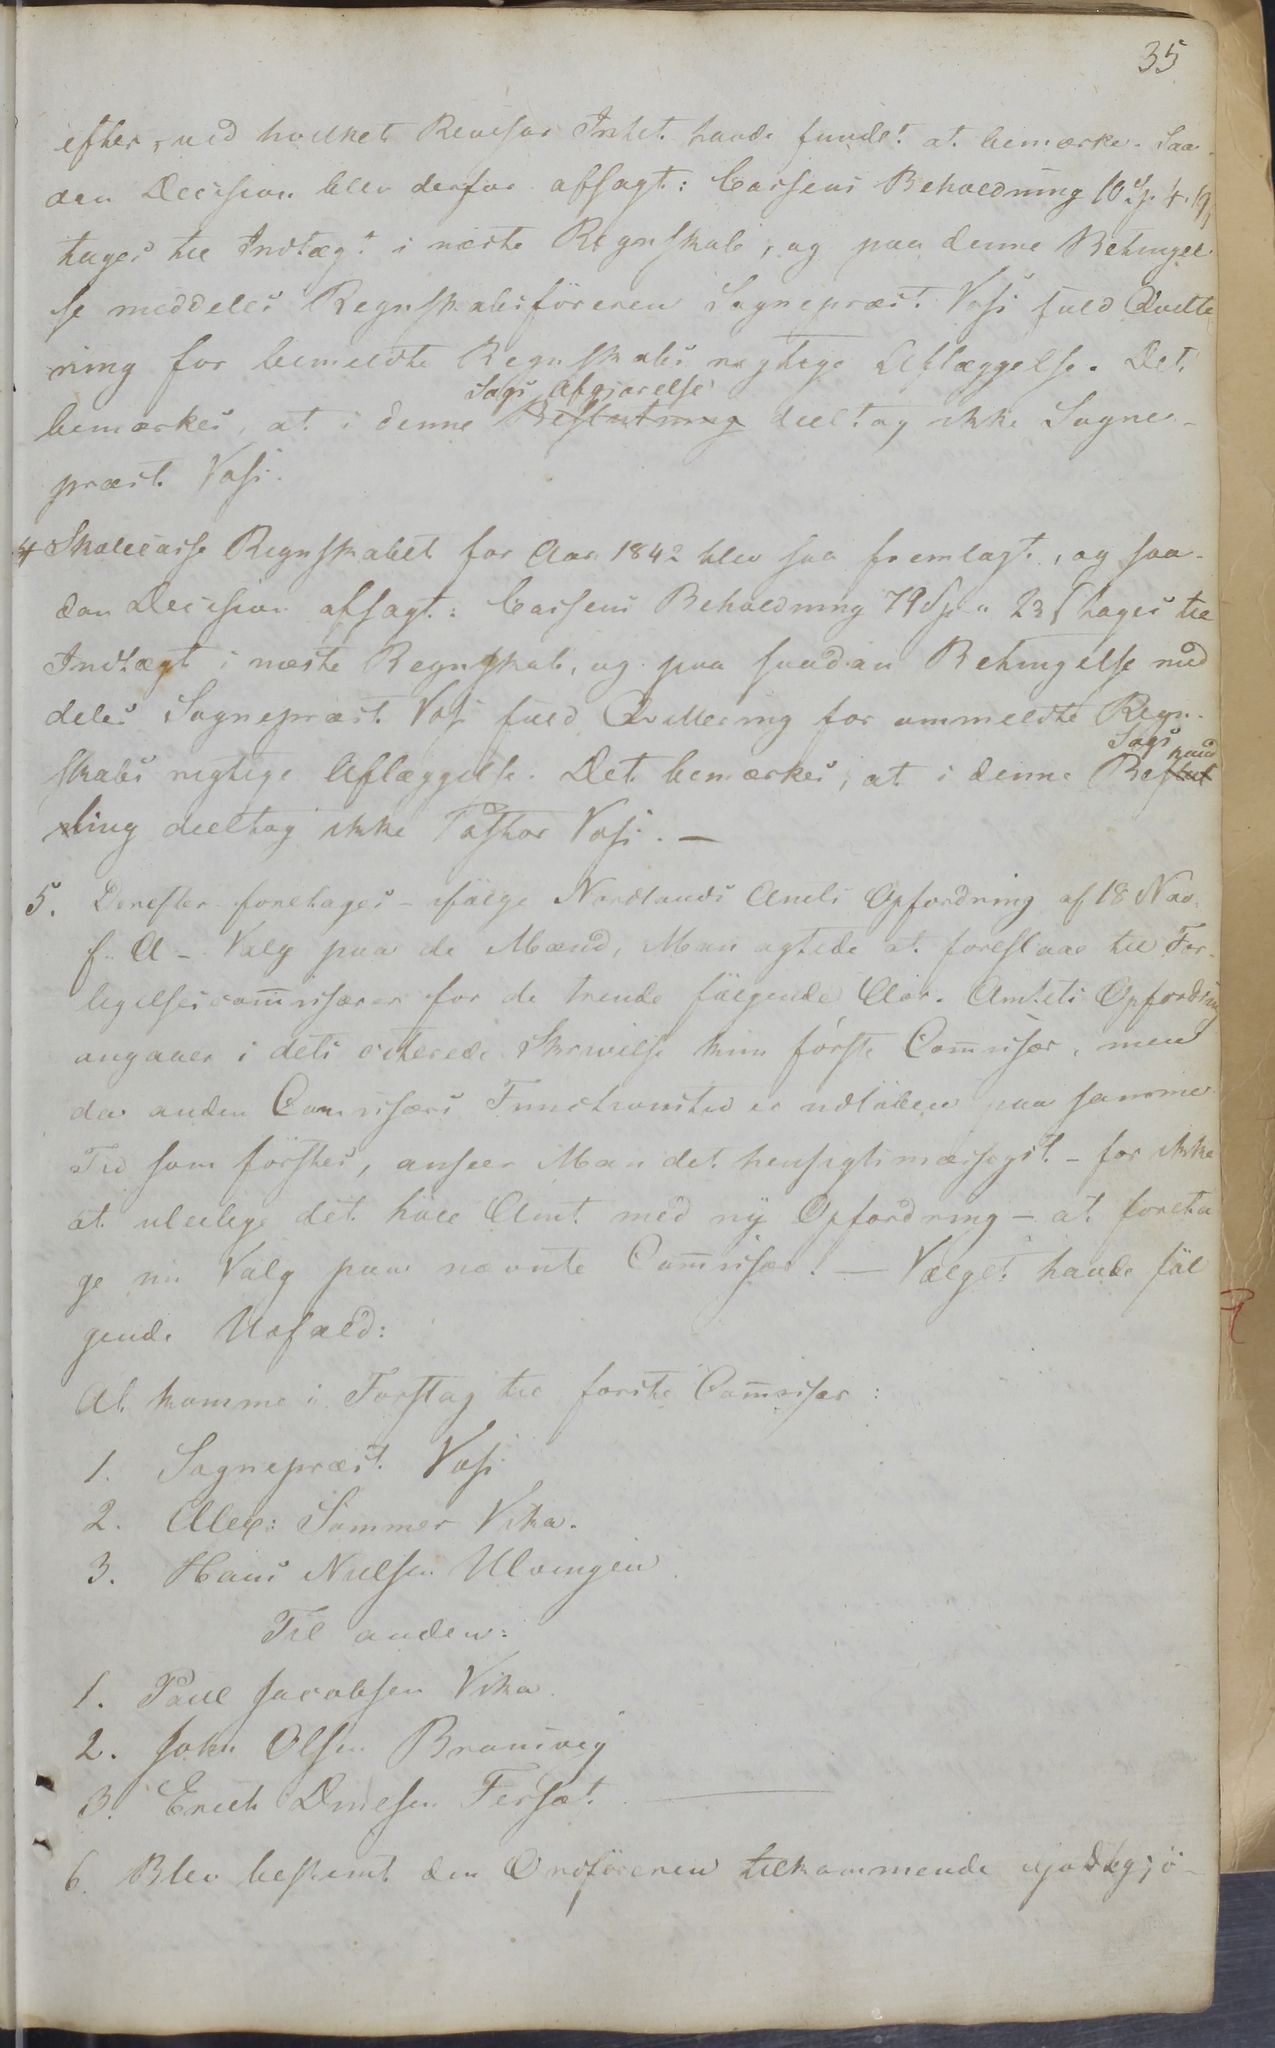 35
efter, ved hvilket Revisor Intet havde fundet at bemærke. Saa-
dan Decision blev derfor afsagt: Cassens Beholdning 10 Sp. 4. 19
tages til Indtægt i næste Regnskab, og paa denne Betingel
se meddeles Regnskabsföreren Sognepræst Vosi fuld Qvitte
ring for bemeldte Regnskabs rigtige Aflæggelse. Det
Sags Afgjørelse
bemærkes, at i denne Beslutning deeltog ikke Sogne-
præst Vosi.
4 Skolecasse Regnskabet for Aar 1842 blev saa fremlagt, og saa-
dan Decision afsagt: Cassens Beholdning 79 Sp. " 23 s tages til
Indtægt i næste Regnskab, og paa saadan Betingelse med
deles Sognepræst Vosi fuld Qvittering for ommeldte Regn-
Sags hand
skabs rigtige Aflæggelse. Det bemærkes, at i denne Beslut
ling deeltog ikke Pastor Vosi. —
5. Derefter foretages - ifölge Nordlands Amts Opfordring af 18 Nov.
f. A - Valg paa de Mænd, Man agtede at foreslaae til For-
ligelsescom̄isærer for de trende fölgende Aar. Amtets Opfordring
angaaer i dets citerede Skrivelse kun förste Com̄især, men
da anden Comisærs Functionstid er udlöben paa samme
Tid som förstes, anseer Man det hensigtsmæssigst - for ikke
at uleilige det höie Amt med ny Opfordring - at foreta
ge nu Valg paa nævnte Com̄især. — Valget havde föl
gende Udfald:
At komme i Forslag til første Com̄især:
1. Sognepræst Vosi
2. Alex: Sommer Vika.
3. Hans Nielsen Ulvingen
Til anden:
1. Paul Jacobsen Vika
2. John Olsen Bramsvig
3. Erich Fersæt. —
6. Blev bestemt den Ordföreren tilkommende godtgjö-